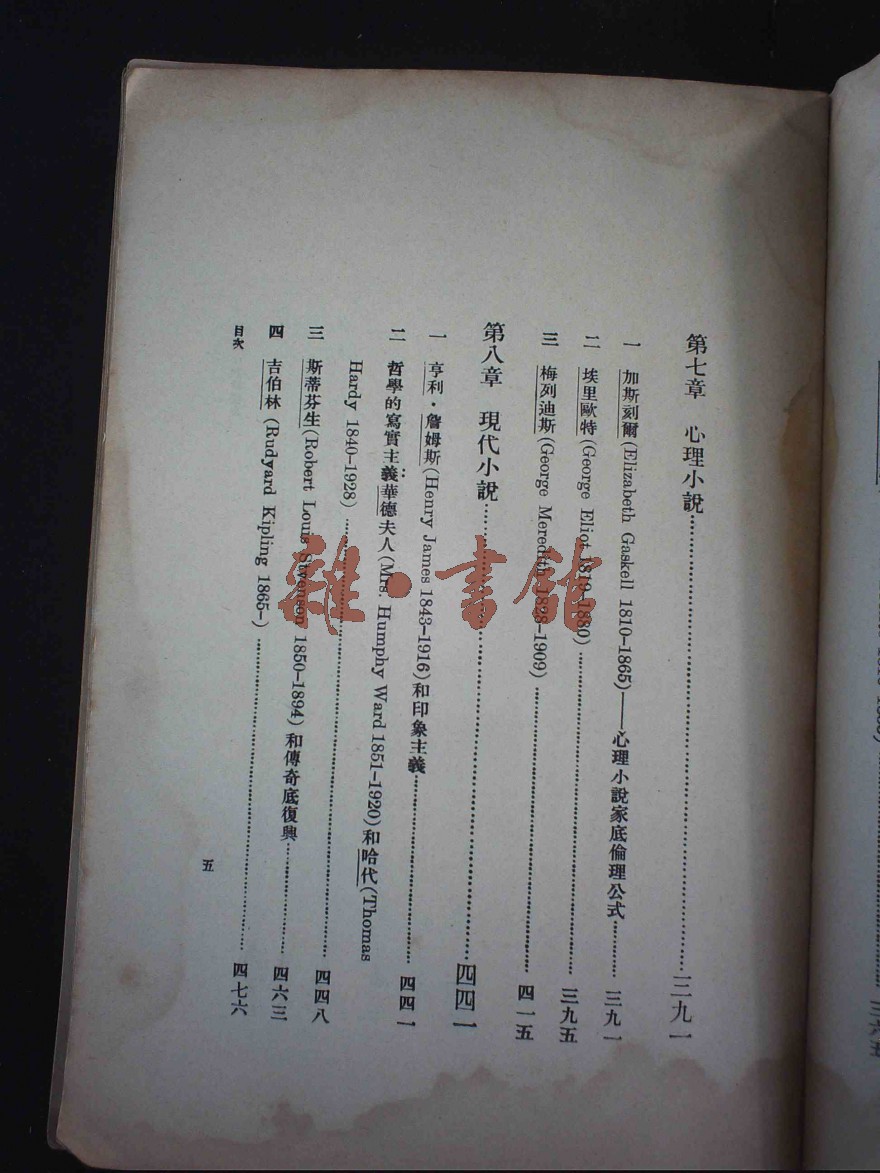 第七章　心理小說…………三九一
一　加斯刻爾(Elizabeth Gaskell 1810–1865)——心理小說家底倫理公式…………三九一
二　埃里歐特(George Eliot 1819–1880)…………三九五
三　梅列迪斯(George Meredith 1828–1909)…………四一五
第八章　現代小說…………四四一
一　亨利・詹姆斯(Henry James 1843–1916)和印象主義…………四四一
二　哲學的寫實主義：華德夫人(Mrs. Humphy Ward 1851–1920)和哈代(Thomas
Hardy 1840–1928)…………四四八
三　斯蒂芬生(Robert Louis Stvenson 1850–1894)和傳奇底復興…………四六三
四　吉伯林(Rudyard Kipling 1865–)…………四七六
目次
五
雜・書館